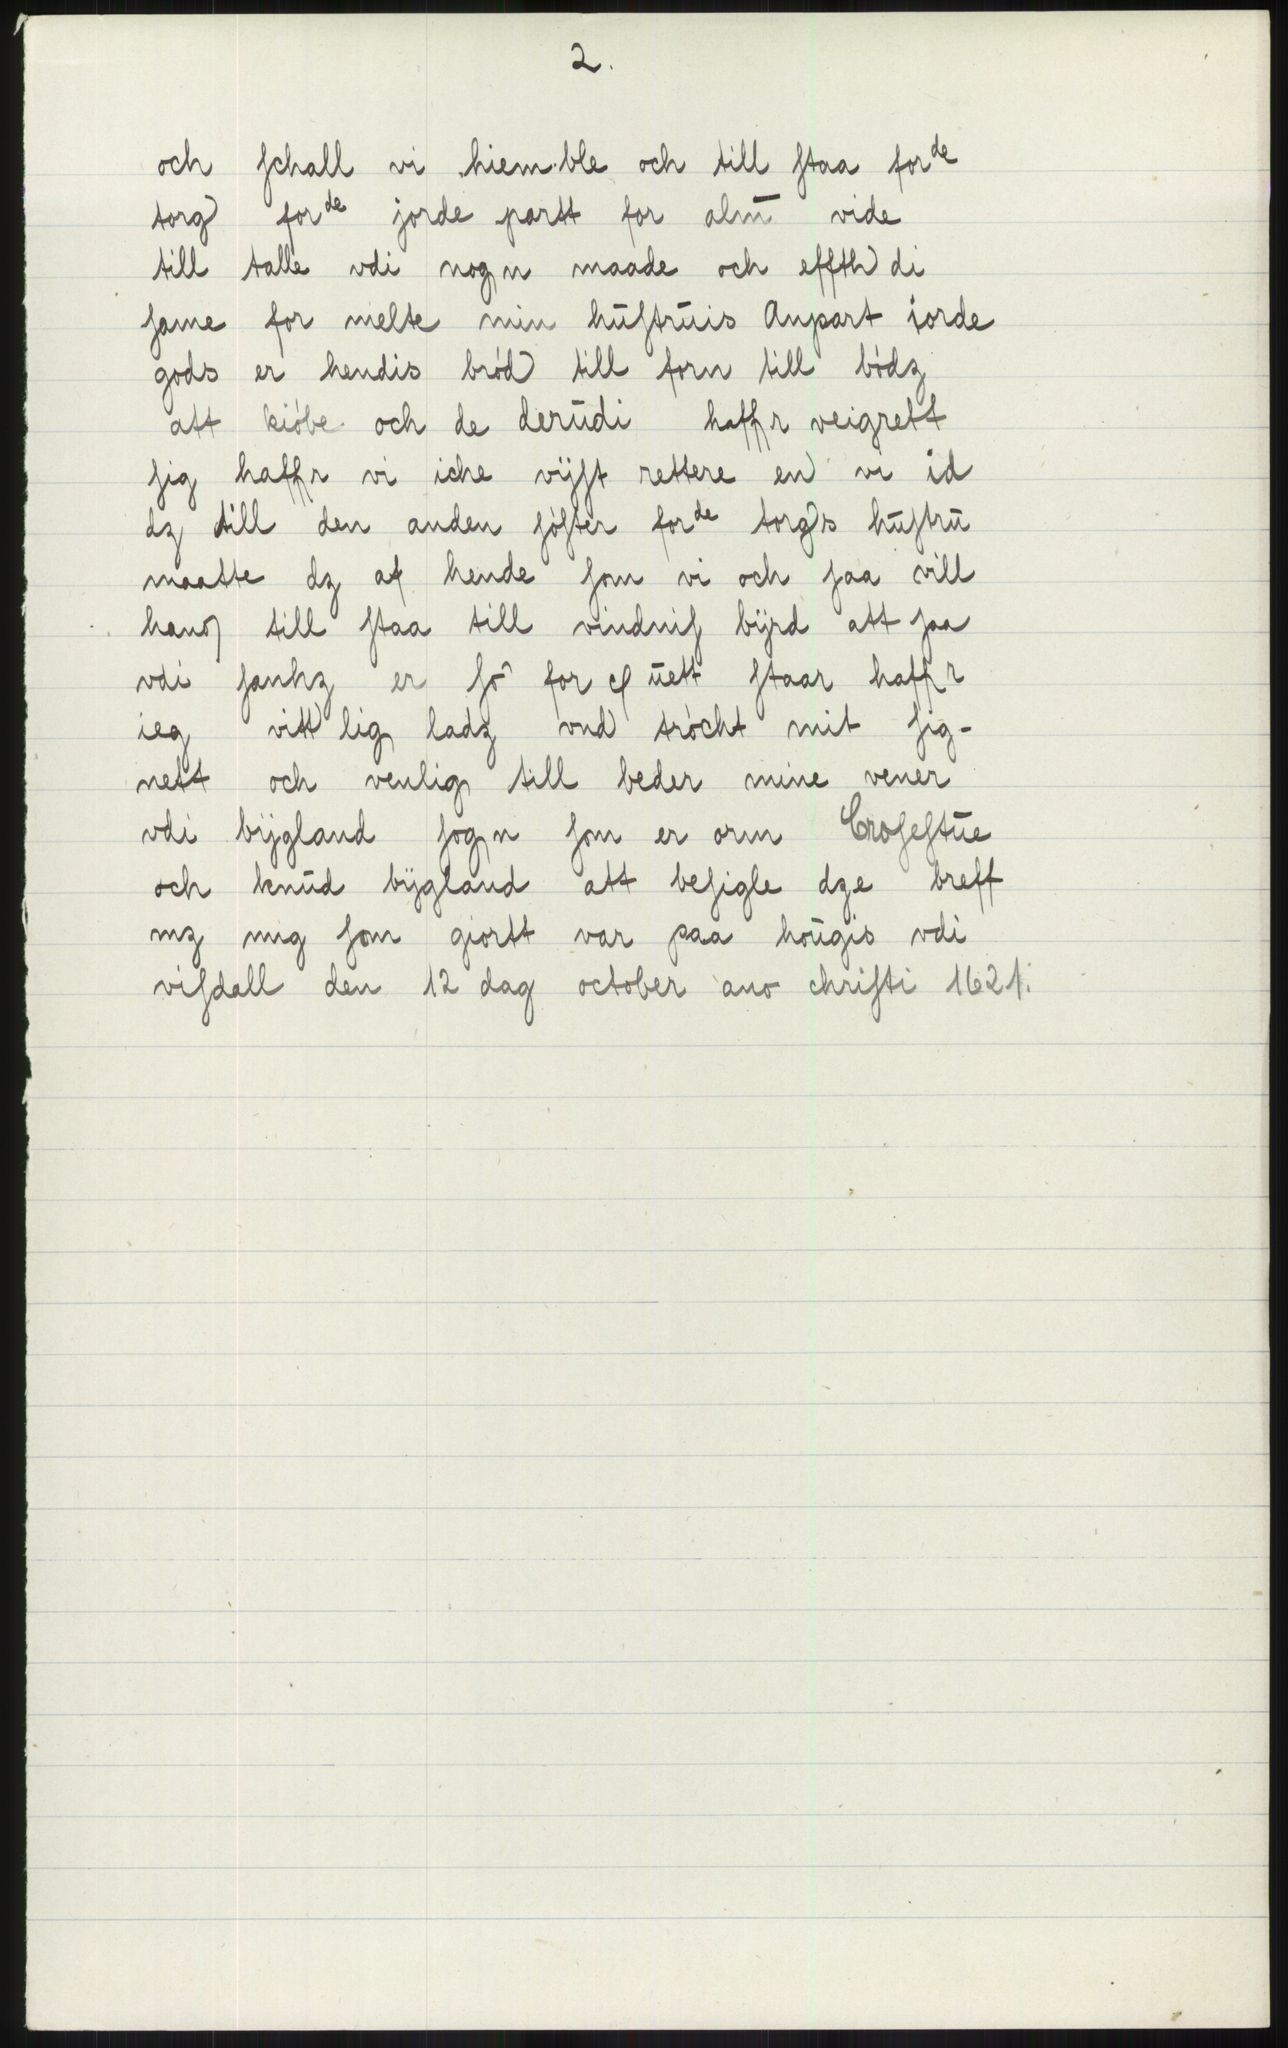 2.
och schall vi hiem.ble och till staa forde
torg forde jorde partt for alm̄ vide
till talle vdi nogn maade och effth di
same for melte min hūstrūis Anpart jorde
gods er hendis bród till forn till bódz
att kióbe och de derūdi haffr veigrett
sig haffr vi iche vijst rettere en vi id
dz till den anden sóster forde torgs hūstrū
maatte dz af hende som vi och saa vill
hans till staa till vindnis bijrd att saa
vdi sankz er só for ūett staar haffr
ieg vitt lig ladz vnd trócht mit sig-
nett och venlig till beder mine vener
vdi bijgland sogn som er orm Crosestūe
och knūd bijgland att besigle dze breff
mz mig som giortt var paa hoūgis vdi
visdall den 12 dag october ano christi 1621.